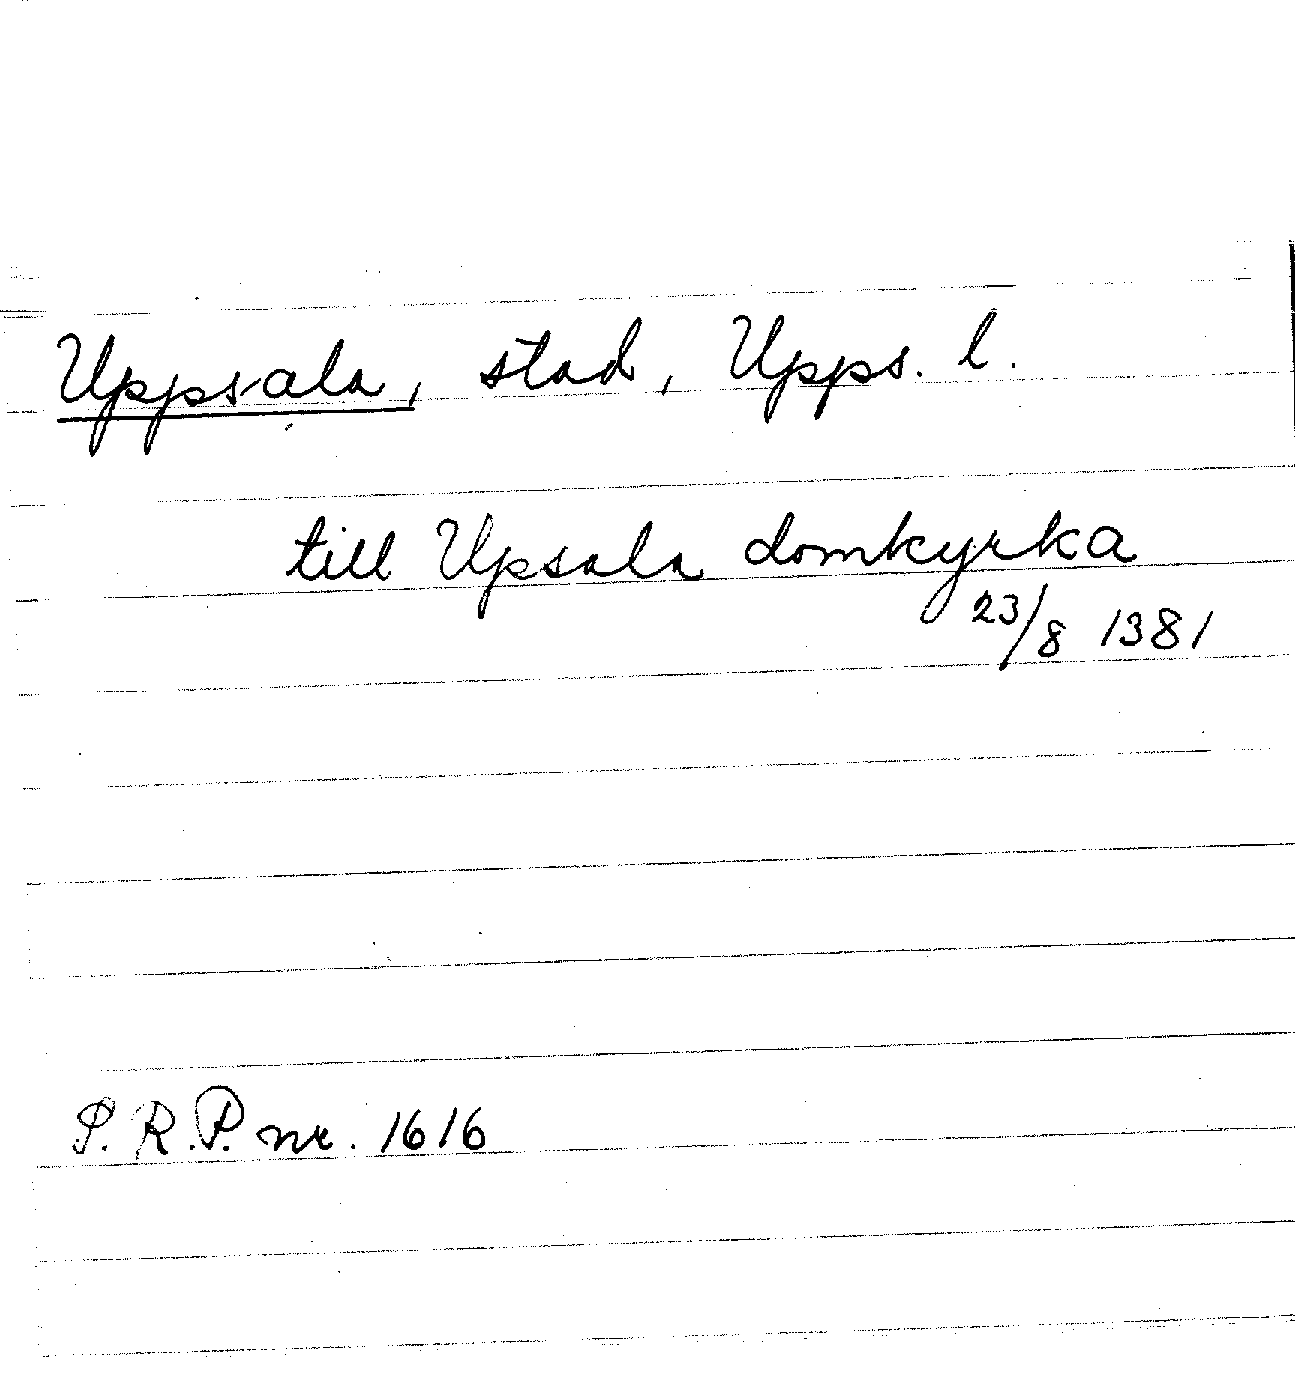 Uppsala, stad, Upps. l.
till Upsala domkyrka
23/8 1381
S.R.P. nr. 1616